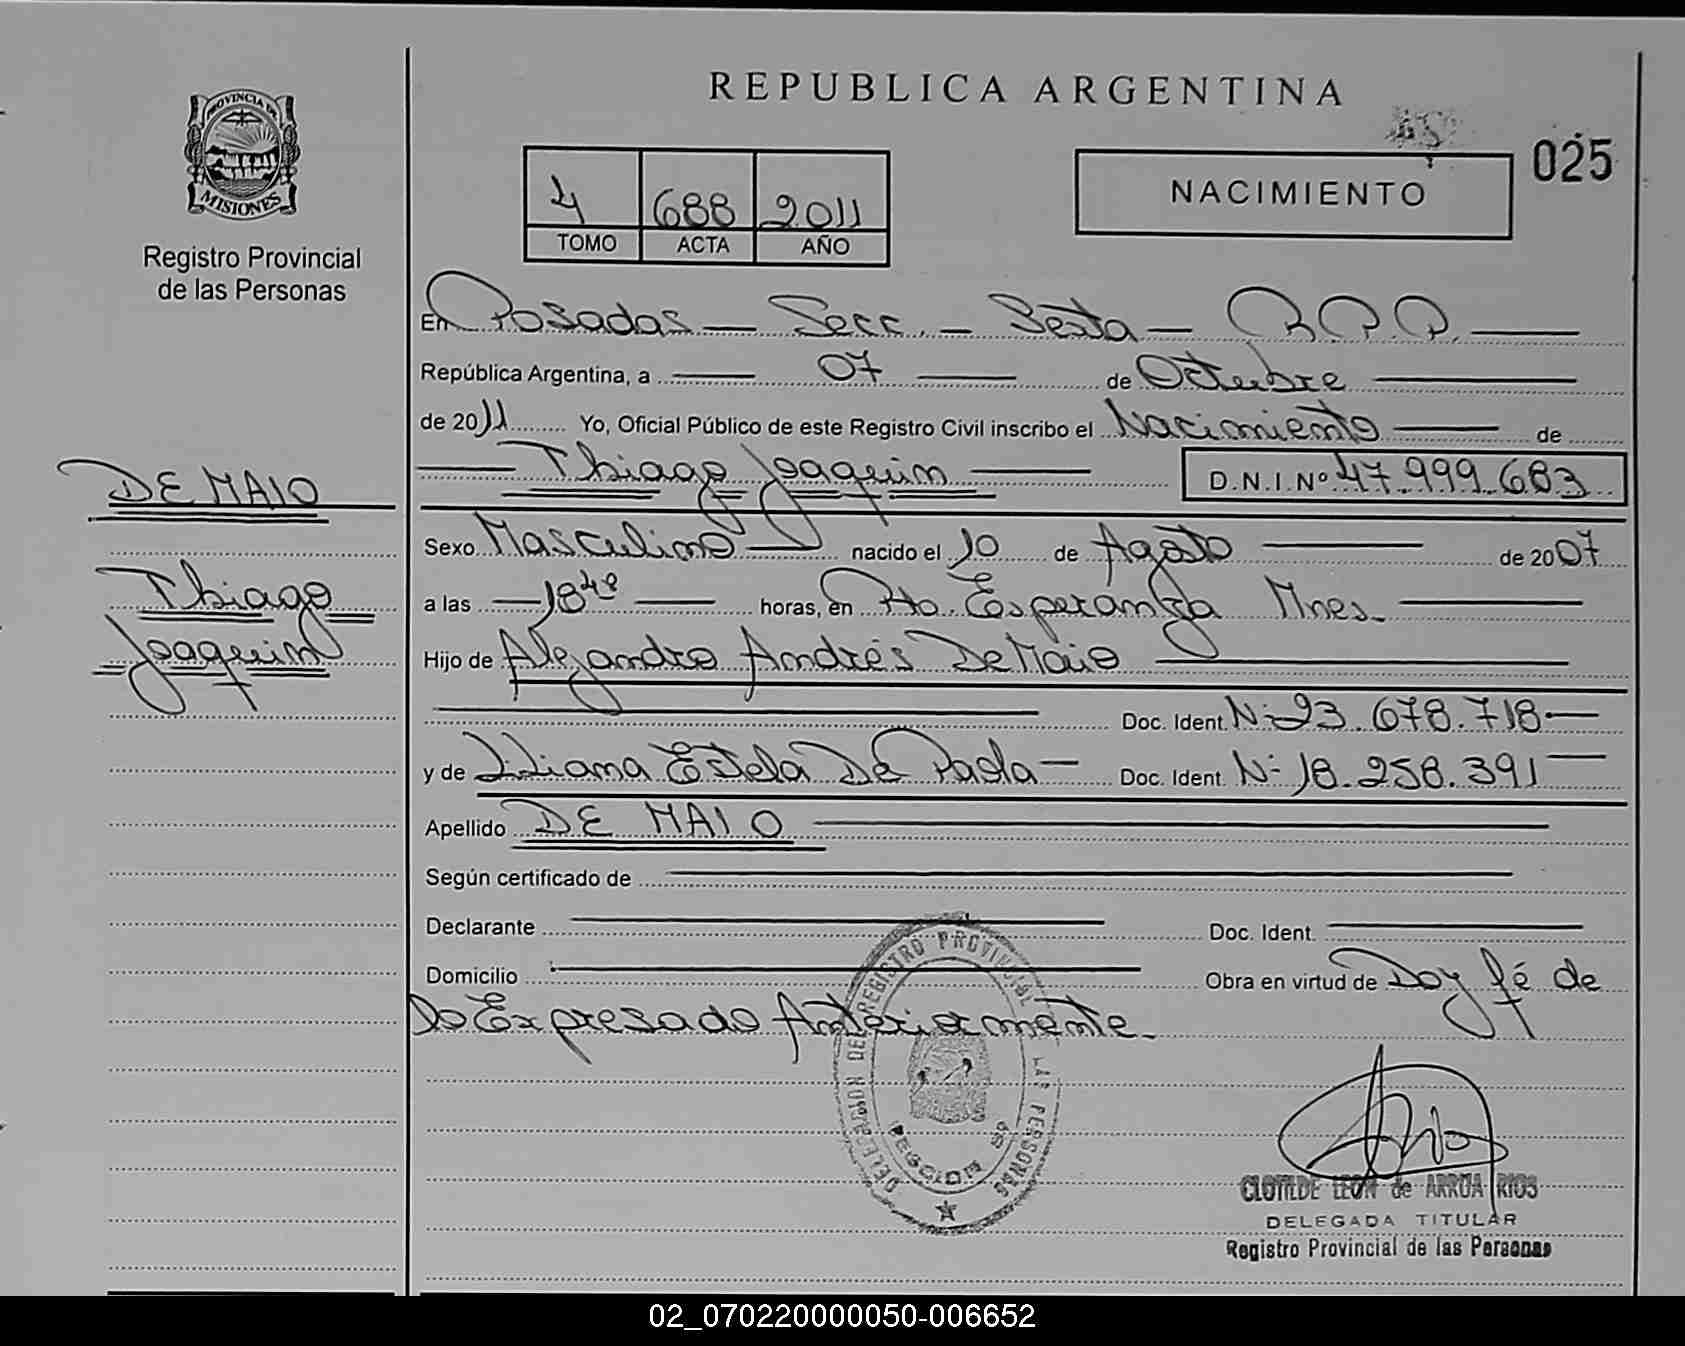 REPUBLICA ARGENTINA
PROVINCIA DE
MISIONES
Registro Provincial
de las Personas
4 688 2011
TOMO ACTA AÑO
NACIMIENTO
025
En Posadas — Secc. — Sexta — R.P.P.
República Argentina, a — 07 — de Octubre
de 2011 Yo, Oficial Público de este Registro Civil inscribo el Nacimiento — de
Thiago Joaquin — D.N.I Nº 47.999.683
DE MAIO
Thiago
Joaquin
Sexo Masculino — nacido el 10 de Agosto — de 2007
a las — 18 — horas, en Pto. Esperanza Mnes.
Hijo de Alejandro Andrés De Maio
Doc. Ident. Nº 23.678.718 —
y de Liliana Estela De Paola — Doc. Ident. Nº 18.258.391 —
Apellido DE MAIO
Según certificado de
Declarante Doc. Ident.
Domicilio Obra en virtud de Doy fé de
lo Expresado Anteriormente.
DELEGACION DEL REGISTRO PROVINCIAL LAS PERSONAS
CLOTILDE LEON de ARRUA RIOS
DELEGADA TITULAR
Registro Provincial de las Personas
02_070220000050-006652